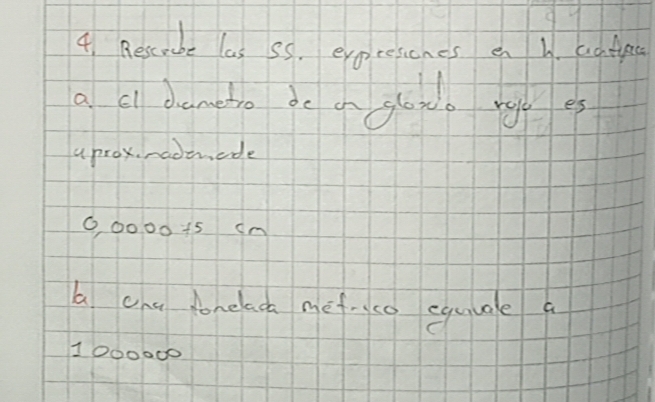 4. Rescribe las ss. expresiones en n. científica
a. El diametro de un globulo rojo es
aproximadamede
0,000075 cm
b una tonelada métrico equivale a
1000000